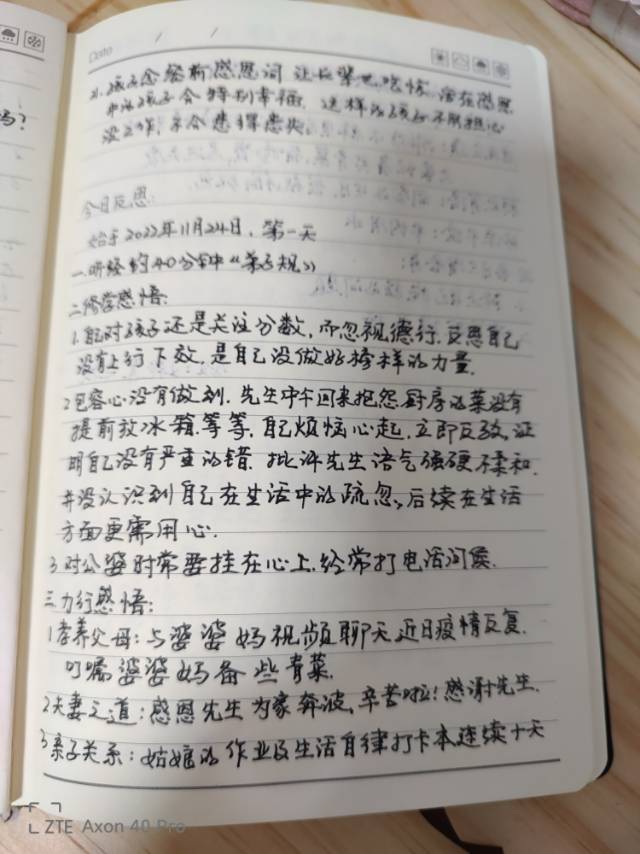 Date / /
吗?
孩子念餐前感恩词 让长辈先吃饭 活在感恩
中的孩子会特别幸福. 这样的孩子不用担心
没工作, 不会患得患失
今日反思:
始于2022年11月24日, 第一天
一. 听经约40分钟《弟子规》
二. 修学感悟:
1. 自己对孩子还是关注分数, 而忽视德行. 反思自己
没有上行下效. 是自己没做好榜样的力量.
2 包容心没有做到. 先生中午回来抱怨厨房的菜没有
提前放冰箱.等等. 自己烦恼心起, 立即反驳, 证
明自己没有严重的错. 批评先生语气强硬不柔和.
并没认识到自己在生活中的疏忽, 后续在生活
方面更需用心.
3 对公婆时常要挂在心上. 经常打电话问侯.
三 力行感悟:
1 孝养父母: 与婆婆妈视频聊天 近日疫情反复.
叮嘱婆婆妈备些青菜.
2 夫妻之道: 感恩先生为家奔波, 辛苦啦! 感谢先生.
3 亲子关系: 姑娘的作业及生活自律打卡本连续十天
ZTE Axon 40 Pro